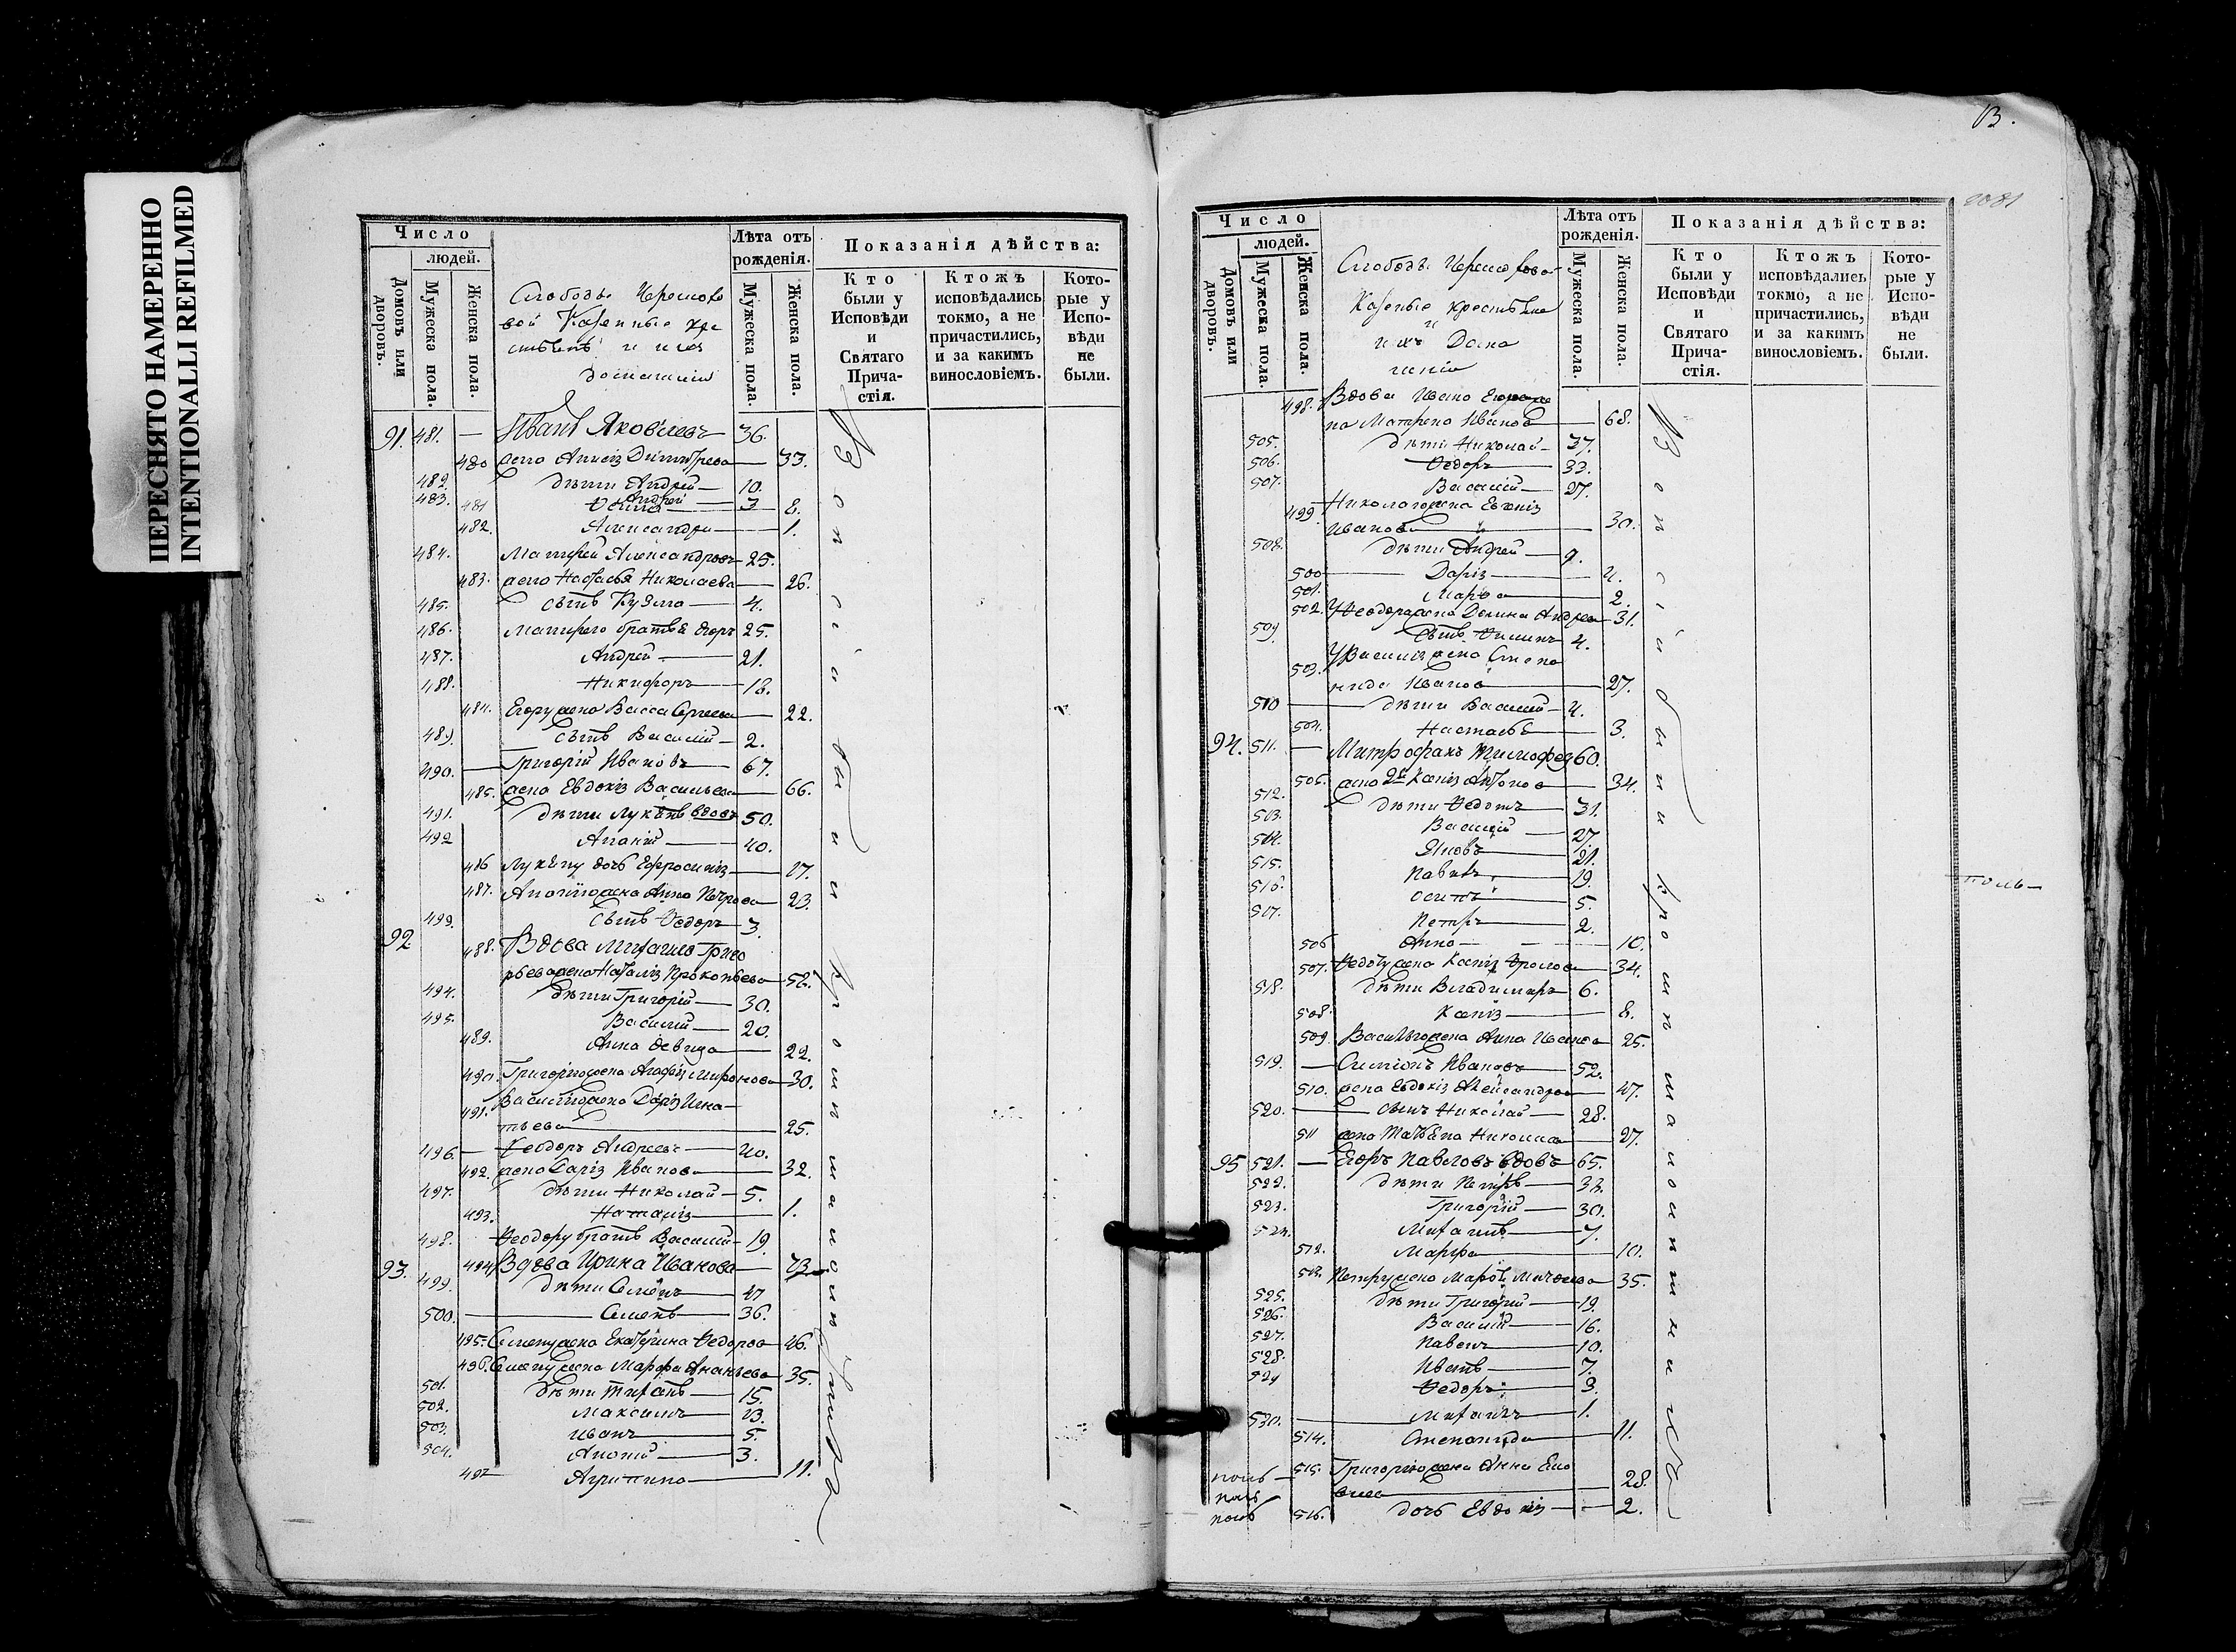 ПЕРЕСНЯТО НАМЕРЕННО
INTENTIONALLI REFILMED
Число
людей.
Домовъ или дворовъ.
Мужеска пола.
Женска пола.
Слободы
вой Казенные кре
домашніи
Лѣта отъ рожденія.
Мужеска пола.
Женска пола.
Показанія дѣйства:
Кто были у Исповѣди и Святаго Прича-стія.
Ктожъ исповѣдались токмо, а не причастились, и за какимъ винословіемъ.
Кото-рые у Испо-вѣди не были.
91. 481. — Иванъ Яковлевъ 36.
480 жена Димитрева 33.
482. дѣти Андрей 10.
483. 481 3 8.
482. Александра 1.
484. Матфей Александровъ 25.
483. жена Наталья Николаева 26.
485. сынъ Кузма 4.
486. Матфею братья Егоръ 25.
487. Андрей 21.
488. Никифоръ 18.
484. Егору жена Васса Сергеева 22.
489. сынъ Василий 2.
490. Григорій Ивановъ 67.
485. жена Евдокія Васильева 66.
491. дѣти Лукьянъ вдовъ 50.
492 Ананій 40.
486 Лукьяну дочь Ефросинія 17.
487. жена Анна Петрова 23.
499. сынъ Федоръ 3.
92. 488. Вдова Михаила Григо
рьева жена Наталія Прокопьева 52.
494. дѣти Григорій 30.
495. Василий 20.
489. Анна девица 22.
490. Григорію жена Агафія Миронова 30.
491. Василію жена Дарія Игна
тьева 25.
496. — Феодоръ Андреевъ 40.
492. жена Дарія Иванова 32.
497. дѣти Николай 5.
493. Наталія 1.
498. Феодору братъ Василий 19.
93. 494 Вдова Ирина Иванова 73.
499. дѣти Семёнъ 47
500. Семенъ 36.
495. Семену жена Екатерина Федорова 46.
496. Семену жена Марфа Ананьева 35.
501. дѣти Тихонъ 15.
502. Максимъ 13.
503. Иванъ 5.
504. Ананій 3.
497 Агрипина 11.
Вси сіи были
13.
2081
Число
людей.
Домовъ или дворовъ.
Мужеска пола.
Женска пола.
Слободы
Казеные крестьяне
и
ихъ Дома
шніи
Лѣта отъ рожденія.
Мужеска пола.
Женска пола.
Показанія дѣйства:
Кто были у Исповѣди и Святаго Прича-стія.
Ктожъ исповѣдались токмо, а не причастились, и за какимъ винословіемъ.
Кото-рые у Испо-вѣди не были.
498. Вдова Ивана
на Матрена Иванова 68.
505. дѣти Николай 37.
506. Федоръ 33.
507. Василій 27.
499 Николаю жена Евгенія
Иванова 30.
508. дѣти Андрей 9.
500 Дарія 4.
501. Марѳа 2.
502. Феодора жена Андреева 31.
509. сынъ Филипъ 4.
503. Василія жена Степа
нида Иванова 27.
510 дѣти Василий 4.
504. Настасья 3.
94. 511. — Митрофанъ Тимофеев 60.
505. жена 2я Ксенія Антонова 34.
512. дѣти Федотъ 31.
513. Василій 27.
514. Яковъ 21.
515. Павелъ 19.
516. Осипъ 5.
517. Петръ 2.
506 Анна 10.
507. Федоту жена Ксенія Фролова 34.
518. дѣти Владимиръ 6.
508. Ксенія 8.
509. Василію жена Анна Иванова 25.
519. — Симеонъ Ивановъ 52.
510. жена Евдокія Александрова 47.
520. сынъ Николай 28.
511 жена Татьяна Николаева 27.
95 521. — Егоръ Павловъ вдовъ 65.
522. дѣти Петръ 37.
523. Григорій 30.
524. Михаилъ 7.
512. Марфа 10.
513. Петру жена Марѳа 35.
525. дѣти Григорій 19.
526. Василій 16.
527. Павелъ 10.
528. Иванъ 7.
529 Федоръ 3.
530. Михаилъ 1.
514. Степанида 11.
515. Григорію жена Анна 28.
516. дочь Евдокія 2.
Вси сіи были